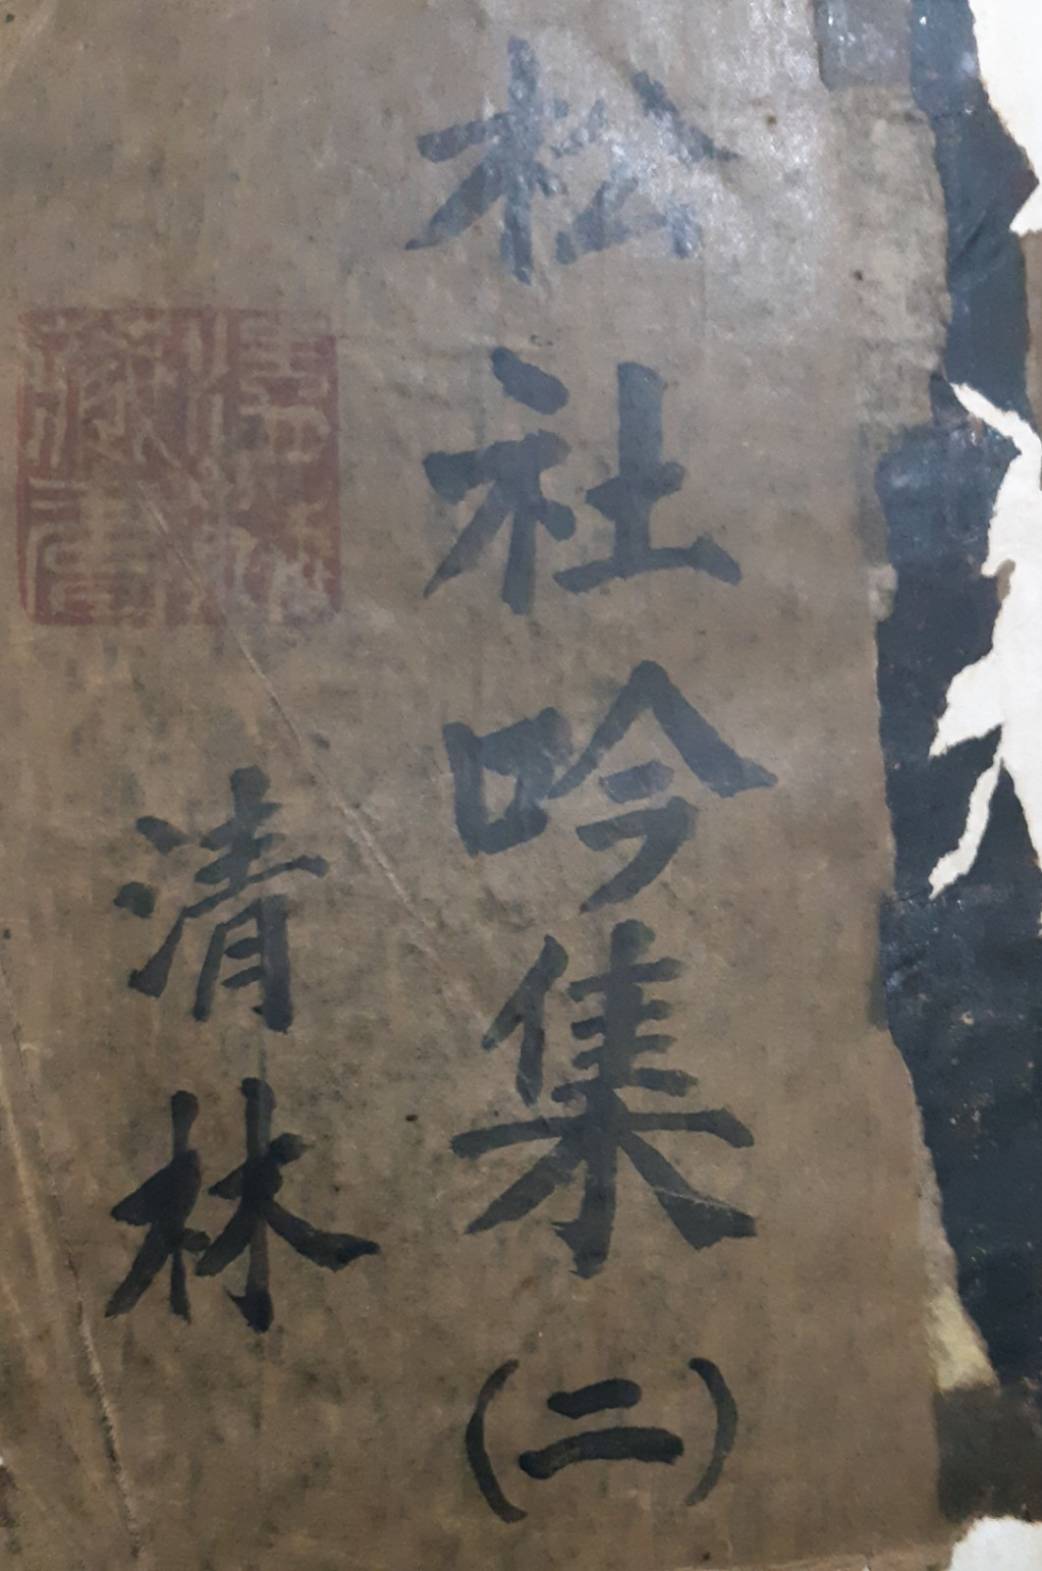 松社吟集(二)
清林